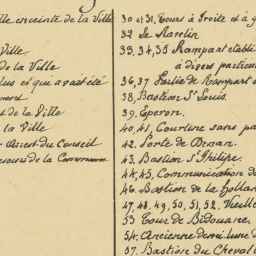 lle enceinte de la Ville
Ville
de la Ville
lus et qui avait été
ement
t de la Ville
la Ville
Arrest du Conseil
secours de la Commune
30 et 31, Tours à droite et à g
32 Le Ravelin
33, 34, 35 Rempart établi
à divers particu
36, 37 Partie de Rempart
38, Bastion St Louis
39, Eperon.
40, 41, Courtine sans pa
42, Porte de Ornan.
43, Bastion St Philipe.
44, 45, Communication de
46, Bastion de la Hollan
47, 48, 49, 50, 51, 52, Vieille
53 Tour de Bidouane,
54, Ancienne demi lune d
57, Bastion du Cheval